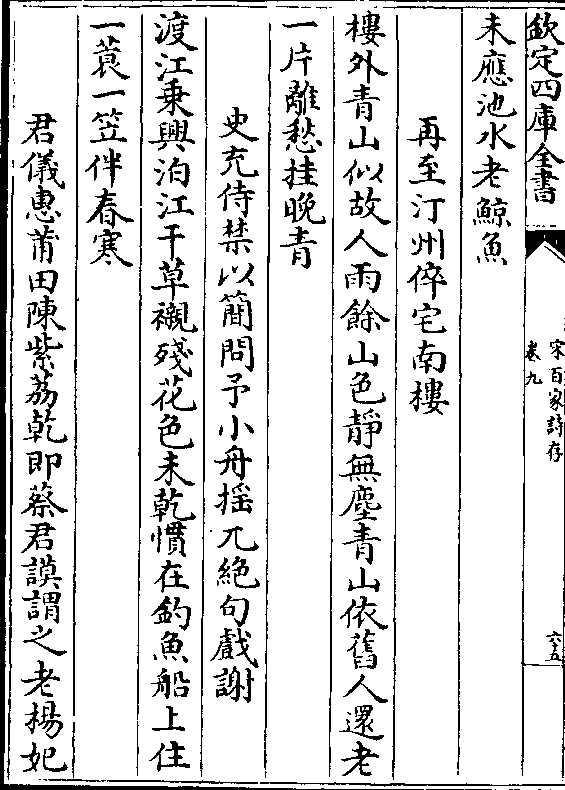 欽定四庫全書
宋百家詩存
卷九
六五
未應池水老鯨魚
再至汀州倅宅南樓
樓外青山似故人雨餘山色靜無塵青山依舊人還老
一片離愁挂晚青
史充侍禁以簡問予小舟揺兀絶句戲謝
渡江乗興泊江干草襯殘花色未乾慣在釣魚船上住
一蓑一笠伴春寒
君儀惠莆田陳紫荔乾即蔡君謨謂之老楊妃